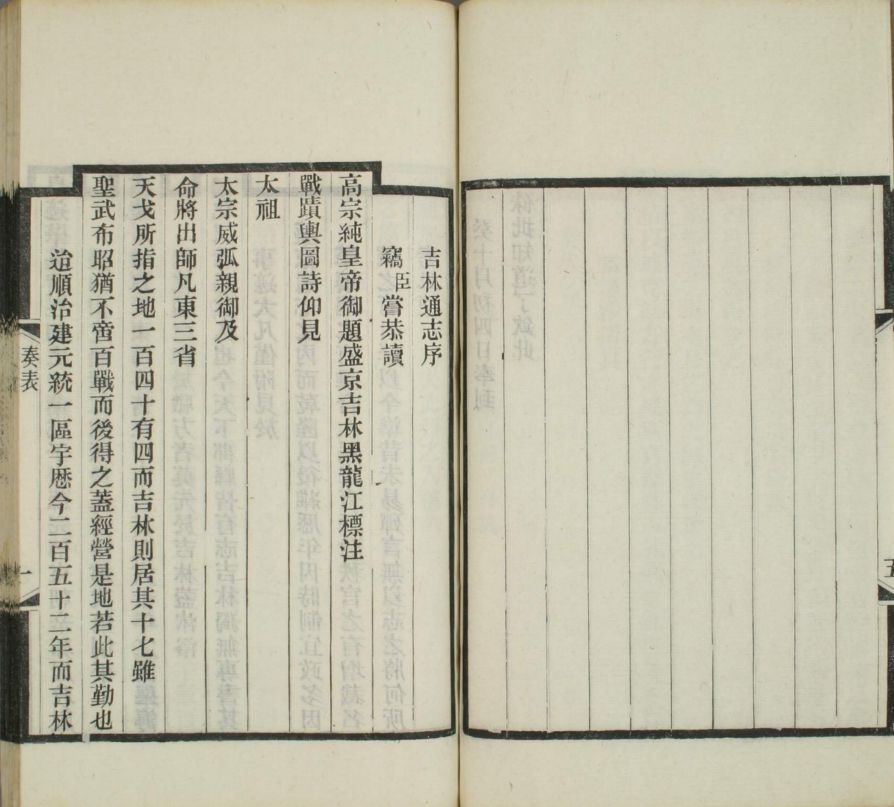 五
吉林通志序
竊臣嘗恭讀
高宗純皇帝御題盛京吉林黑龍江標注
戰蹟輿圖詩仰見
太祖
太宗威弧親御及
命將出師凡東三省
天戈所指之地一百四十有四而吉林則居其十七雖
聖武布昭猶不啻百戰而後得之蓋經營是地若此其勤也
迨順治建元統一區宇歷今二百五十二年而吉林
奏表
一